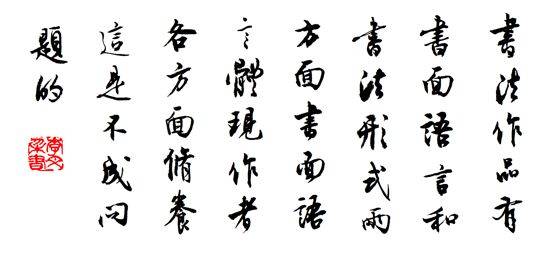 書法作品有
書面語言和
書法形式兩
方面書面語
言體現作者
各方面脩養
這是不成问
題的